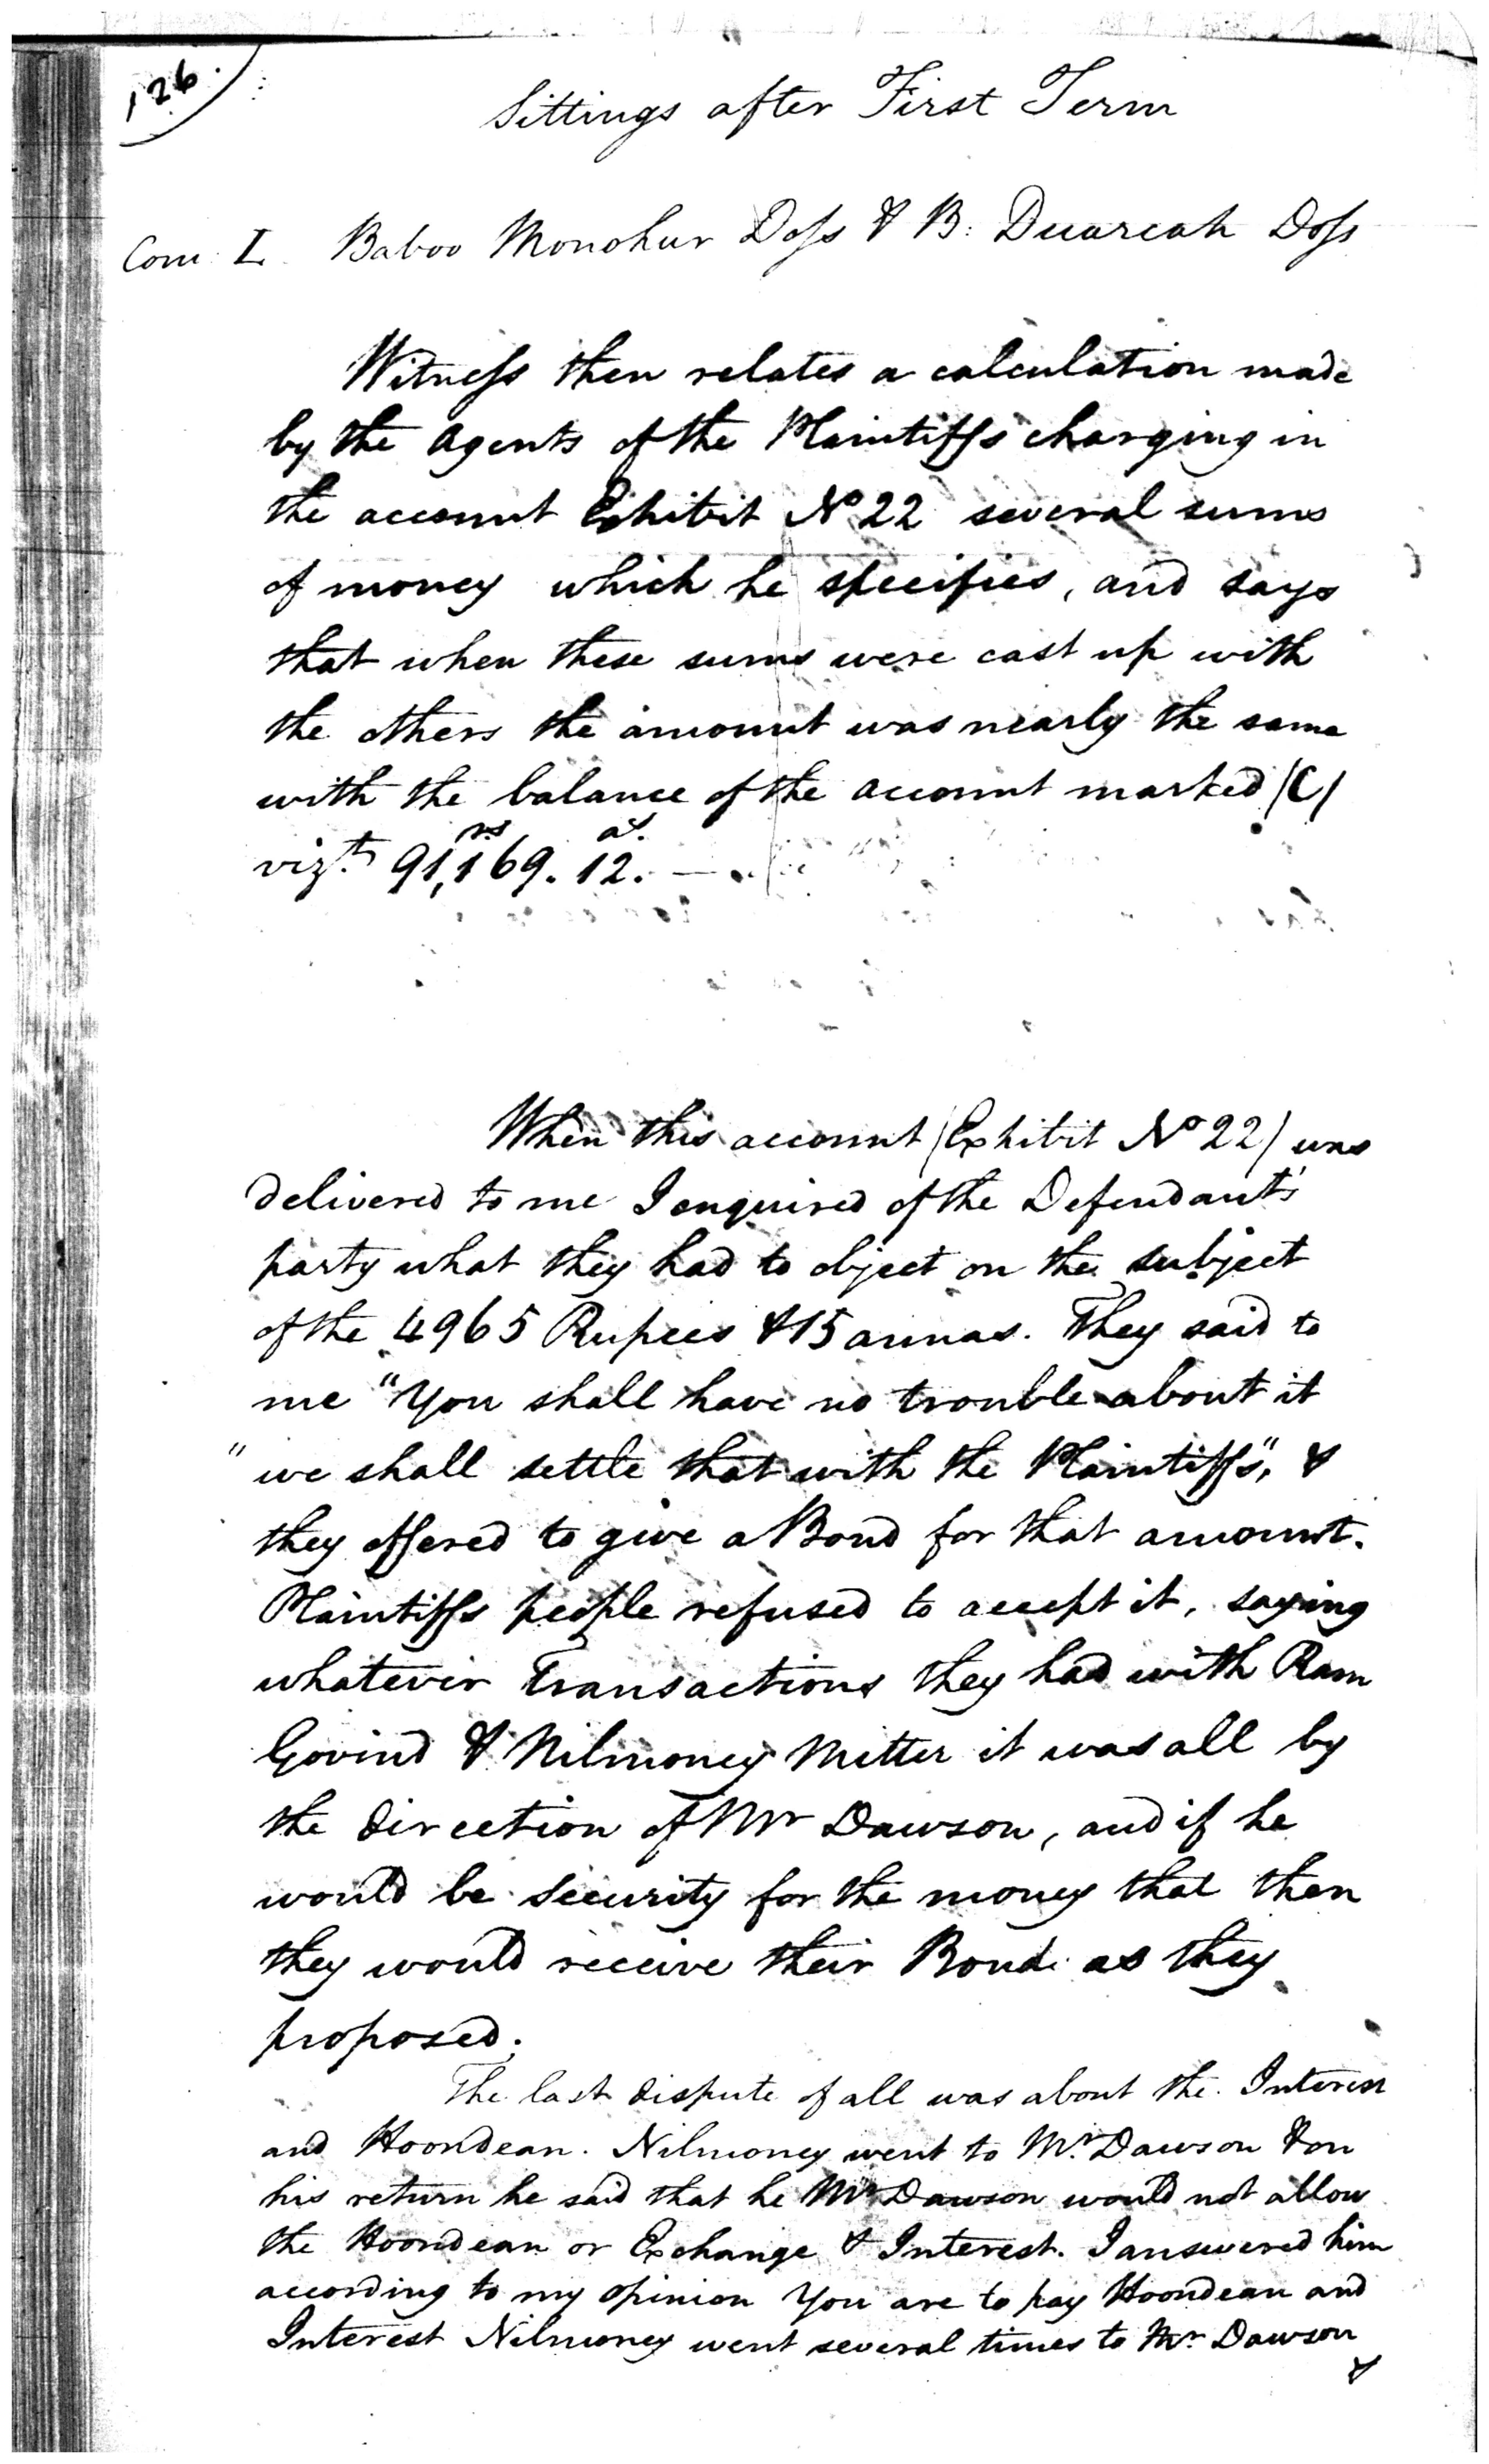 126.
Sittings after First Term
Com. I. Baboo Monohur Doss & B: Duarcah Doss
Witness then relates a calculation made
by the Agents of the Plaintiffs charging in
the account Exhibit No 22 several sums
of money which he specifies, and says
that when these sums were cast up with
the others the amount was nearly the same
with the balance of the account marked (C)
rs as.
vizt. 91,169. 12. —
When this account (Exhibit No 22) was
delivered to me I enquired of the Defendant's
party what they had to object on the subject
of the 4965 Rupees & 15 annas. They said to
me "You shall have no trouble about it
" we shall settle that with the Plaintiffs", &
they offered to give a Bond for that amount.
Plaintiffs people refused to accept it, saying
whatever Transactions they had with Ram
Govind & Nilmoney Mitter it was all by
the direction of Mr Dawson, and if he
would be security for the money that then
they would receive their Bond as they
proposed.
The last dispute of all was about the Interest
and Hoondean. Nilmoney went to Mr. Dawson & on
his return he said that he Mr Dawson would not allow
the Hoondean or Exchange & Interest. I answered him
according to my opinion You are to pay Hoondean and
Interest Nilmoney went several times to Mr. Dawson
&